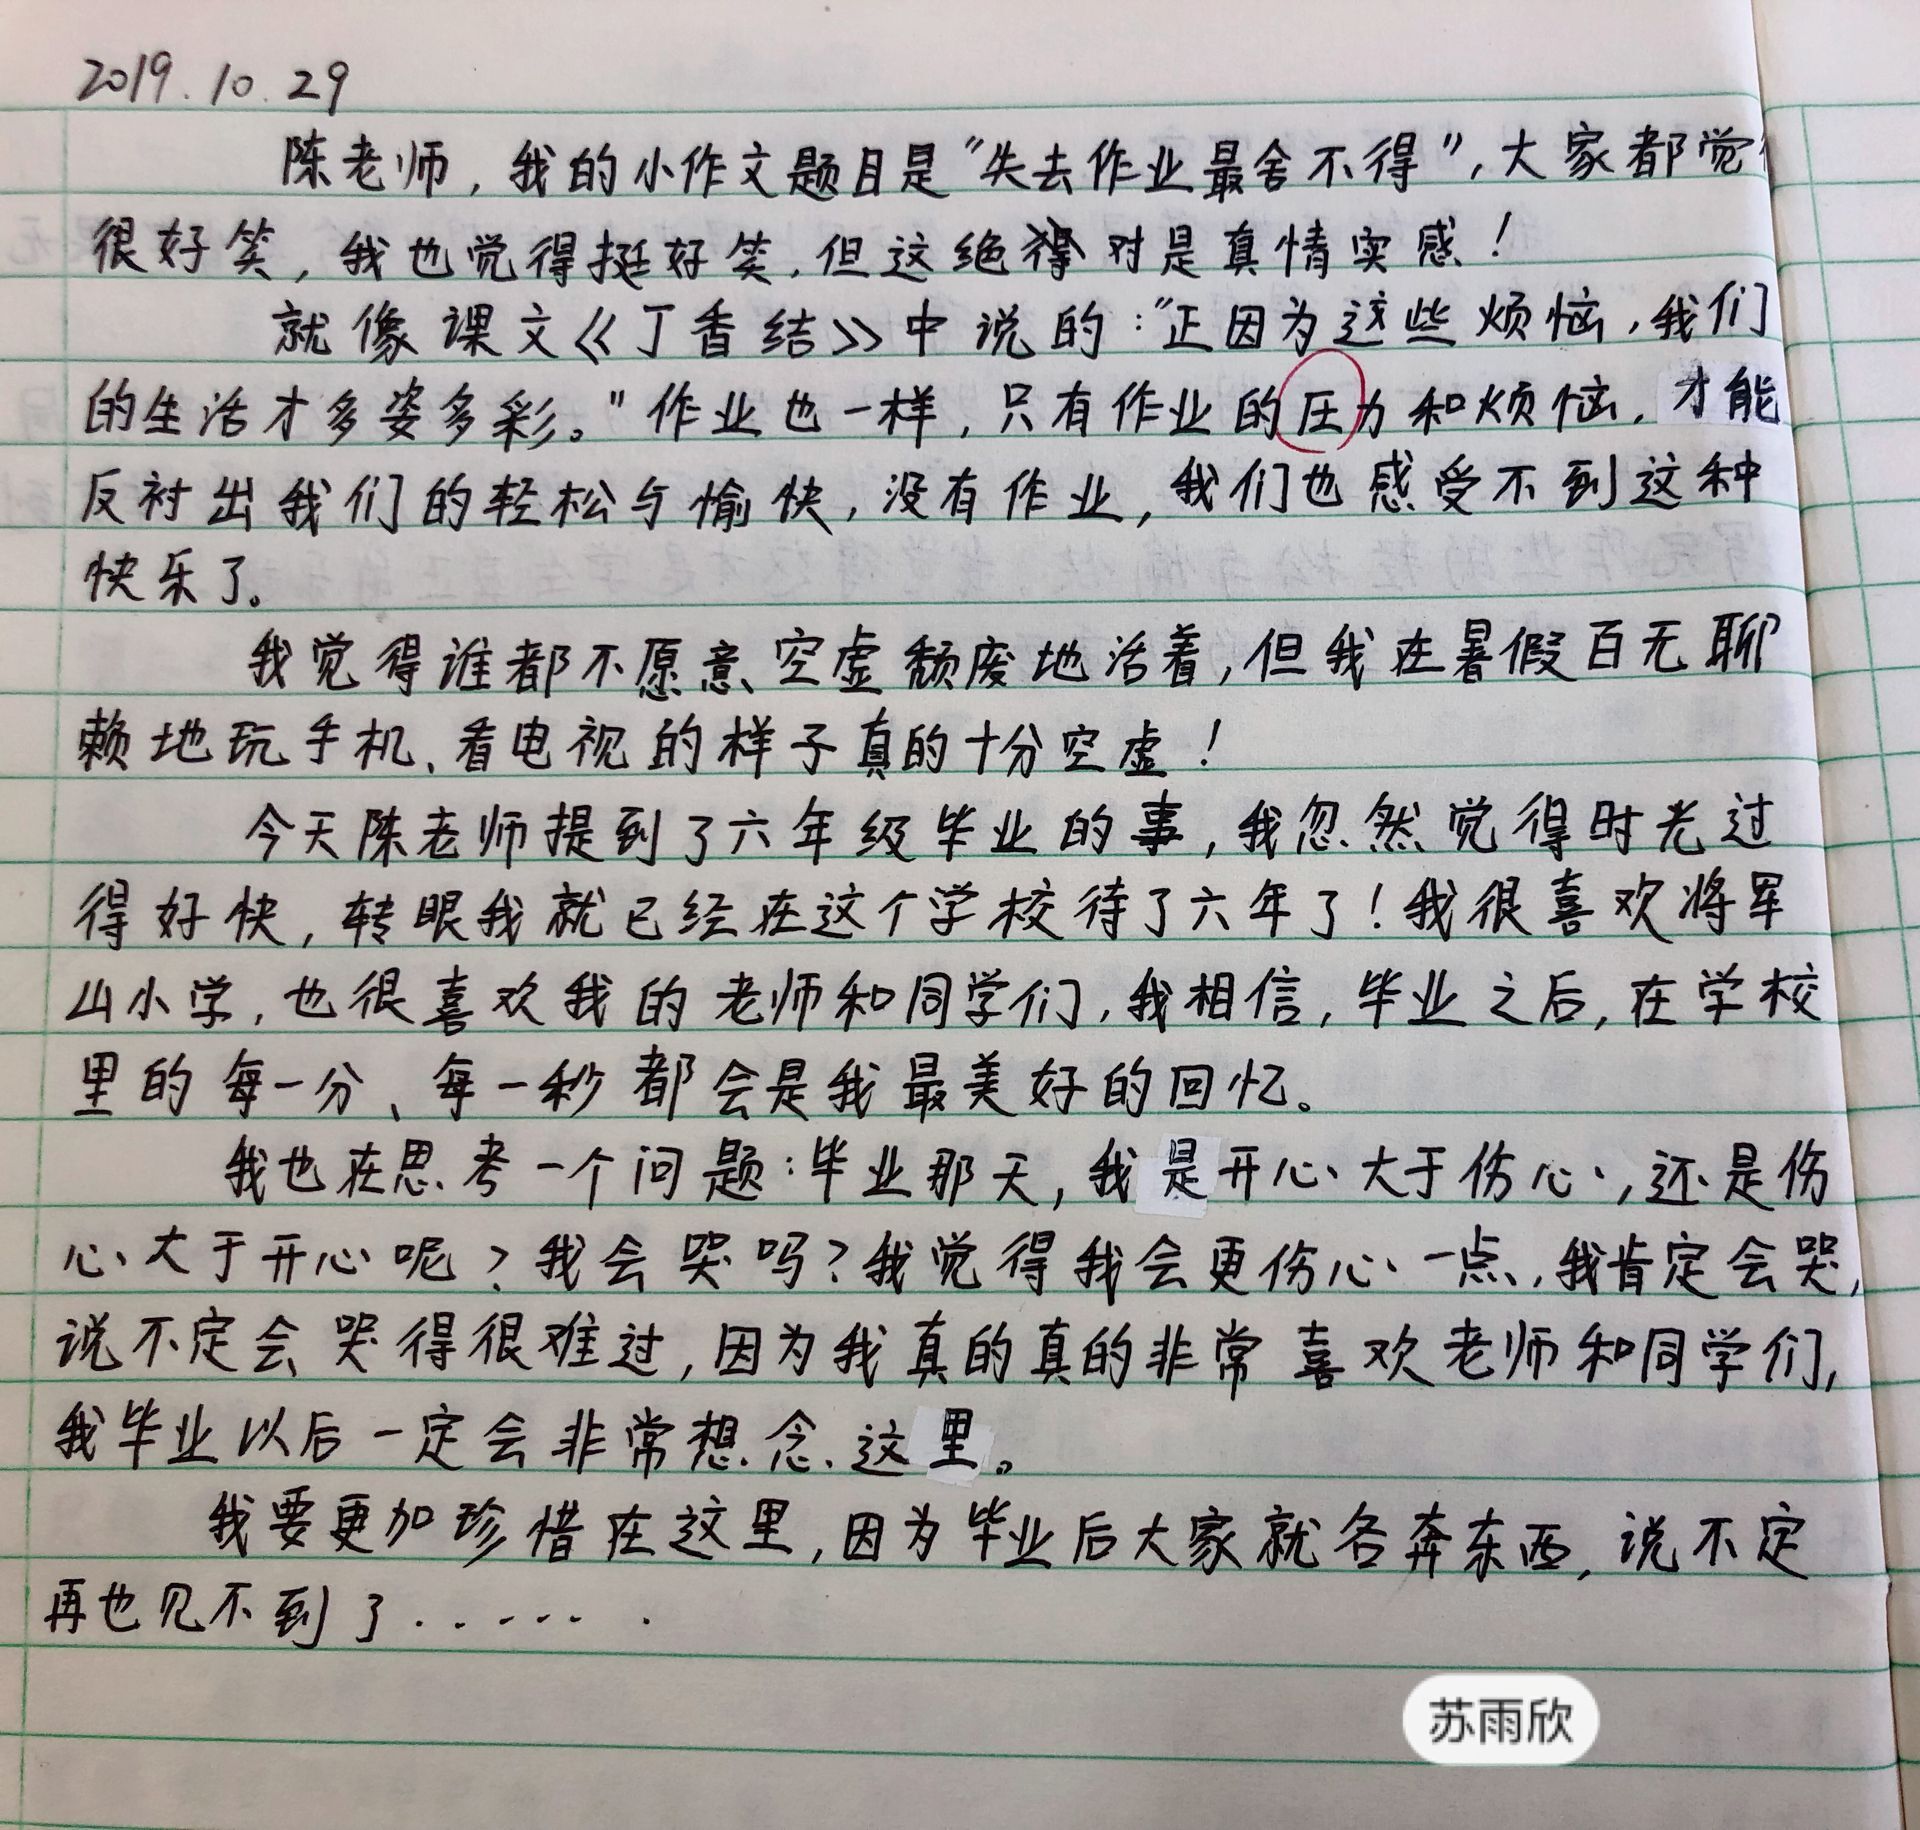 2019.10.29
陈老师，我的小作文题目是"失去作业最舍不得"，大家都觉
很好笑，我也觉得挺好笑，但这绝对是真情实感！
就像课文《丁香结》中说的："正因为这些烦恼，我们
的生活才多姿多彩。"作业也一样，只有作业的压力和烦恼，才能
反衬出我们的轻松与愉快，没有作业，我们也感受不到这种
快乐了。
我觉得谁都不愿意空虚颓废地活着，但我在暑假百无聊
赖地玩手机、看电视的样子真的十分空虚！
今天陈老师提到了六年级毕业的事，我忽然觉得时光过
得好快，转眼我就已经在这个学校待了六年了！我很喜欢将军
山小学，也很喜欢我的老师和同学们，我相信，毕业之后，在学校
里的每一分、每一秒都会是我最美好的回忆。
我也在思考一个问题：毕业那天，我是开心大于伤心，还是伤
心大于开心呢？我会哭吗？我觉得我会更伤心一点，我肯定会哭，
说不定会哭得很难过，因为我真的真的非常喜欢老师和同学们，
我毕业以后一定会非常想念这里。
我要更加珍惜在这里，因为毕业后大家就各奔东西，说不定
再也见不到了……
苏雨欣